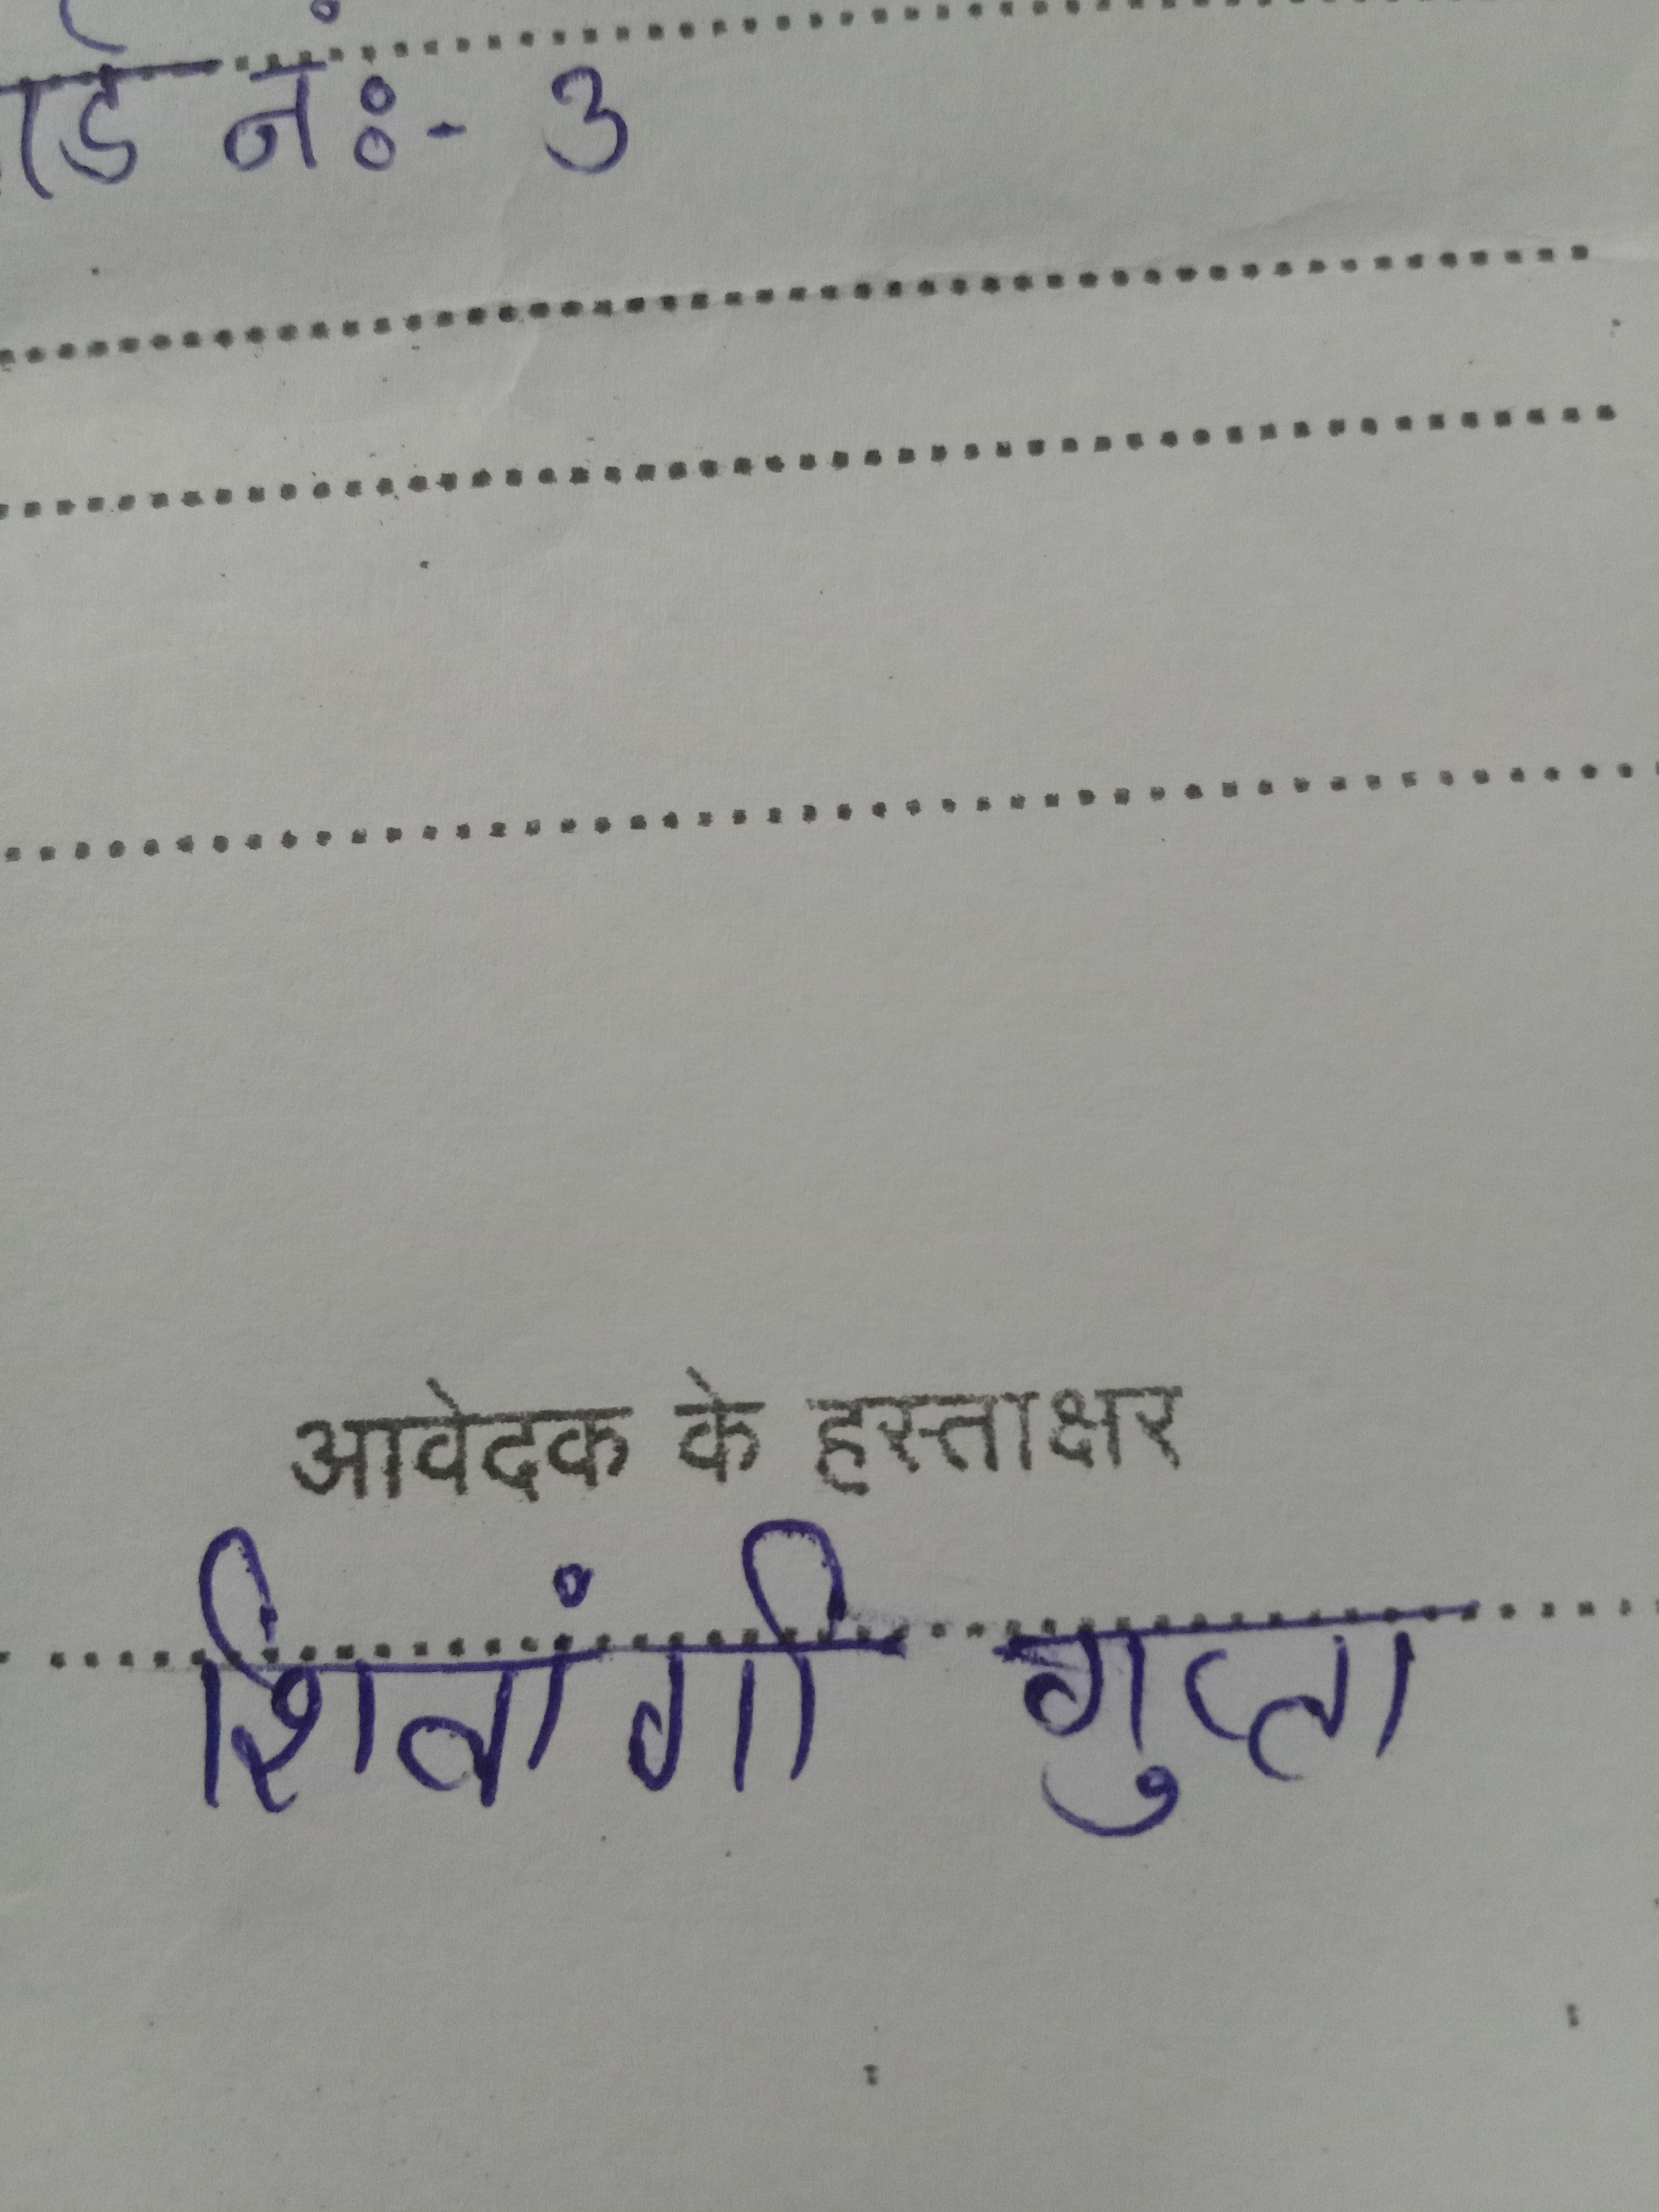 नं:- 3
आवेदक के हस्ताक्षर
शिवांगी गुप्ता